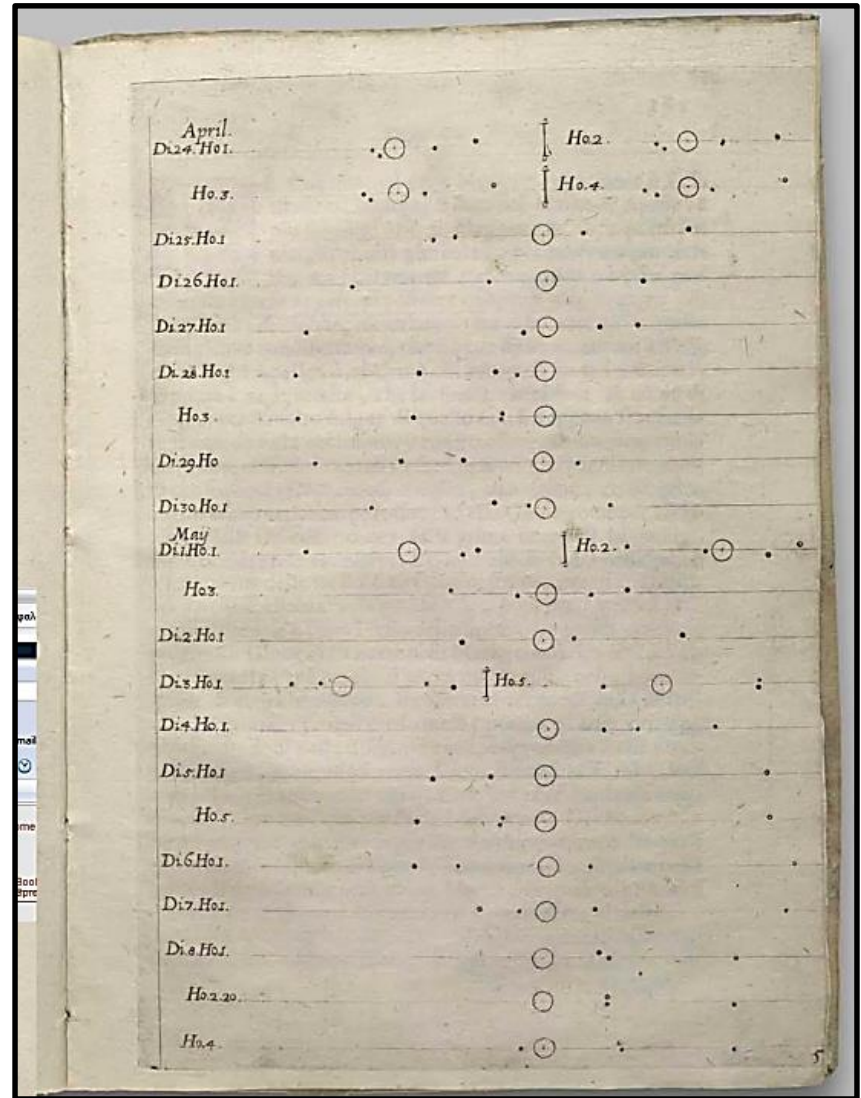 April.
Di.24. Ho1. Ho.2
Ho.3. Ho.4.
Di.25. Ho.1
Di.26. Ho.1.
Di.27. Ho.1
Di.28. Ho.1
Ho.3.
Di.29. Ho
Di.30. Ho.1
Maij
Di.1. Ho.1. Ho.2.
Ho.3.
Di.2. Ho.1
Di.3. Ho.1. Ho.5.
Di.4. Ho.1.
Di.5. Ho.1
Ho.5.
Di.6. Ho.1.
Di.7. Ho.1.
Di.8. Ho.1.
Ho.2.20.
Ho.4.
5
φαλ
mail
ome
Book